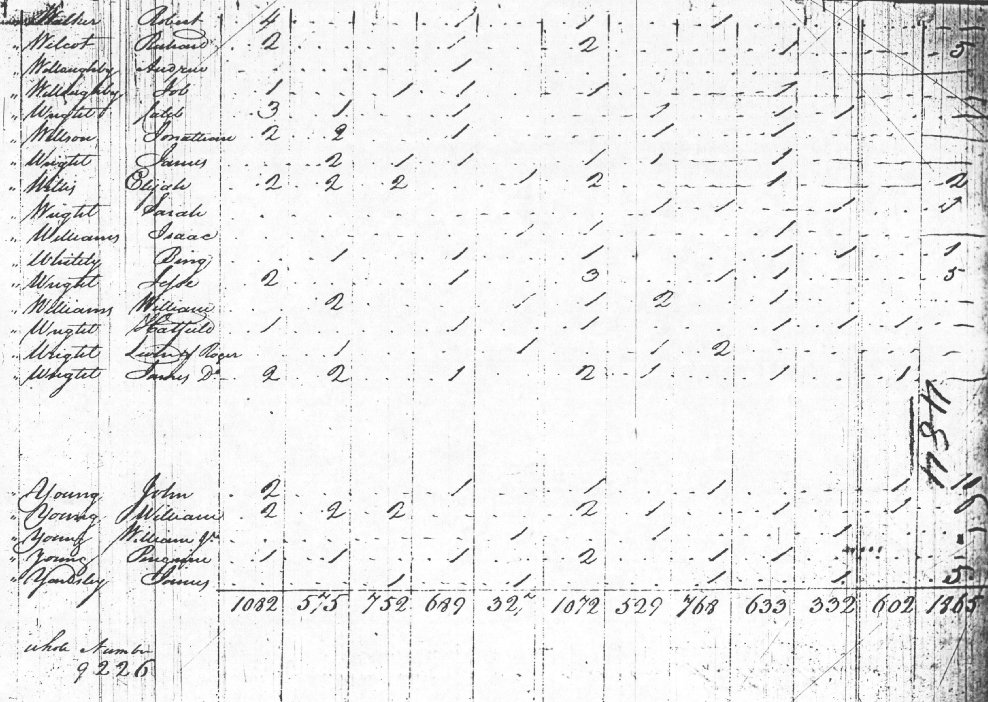 " Walker Robert 4 1 1 1
" Wilcot Richard 2 1 2 1 5
" Willoughby Andrew 1
" Willoughby Job 1 1 1 1 1
" Wright 3 1 1 1 1 1
" Willson Jonathan 2 2 1 1 1
" Wright James 2 1 1 1 1 1
" Willis Elijah 2 2 2 1 2 1 2
" Wright Sarah 1 1 1
" Williams Isaac 1 1 1
" Whitely Bing 1 1 1 1 1 1
" Wright Jesse 2 1 3 1 1 5
" Williams William 2 1 1 2 1
" Wright Hatfield 1 1 1 1 1 1
" Wright Levin of Roger 1 1 1 2
" Wright James Do 2 2 1 2 1 1 1
" Young John 2 1 1 1 1
" Young William 2 2 2 2 1 1 1
" Young William Jr 1 1 1
" Young 1 1 1 2 1 1 5
" Yardsley James 1 1 1 1
1082 575 752 689 32 1072 529 768 633 332 602 1865
whole Number
9226